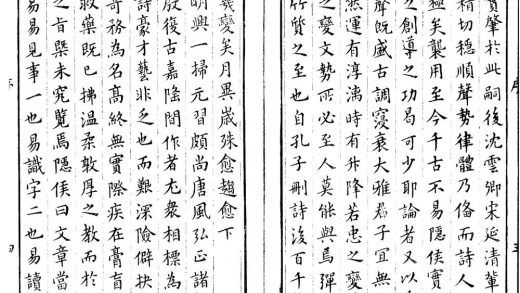 序 五
實肇於此嗣後沈雲卿宋延清輩
精切穩順聲勢律體乃備而詩人
極矣襲用至今千古不易隱侯實
之創導之功曷可少耶論者又以
聲既盛古調寖衰大雅君子宜無
然運有淳漓時有升降若忠之變
之變文勢所必至人莫能與焉彈
竹質之至也自孔子刪詩後百千
幾變矣月異歲殊愈趨愈下
明興一掃元習頗尚唐風弘正諸
啟復古嘉隆間作者尤衆相標為
詩豪才藝非乏也而艱深險僻抉
奇務為名高終無實際疾在膏肓
救藥既已拂溫柔敦厚之教而於
之旨槩未究覽焉隱侯曰文章當
易易見事一也易識字二也易讀
序 四